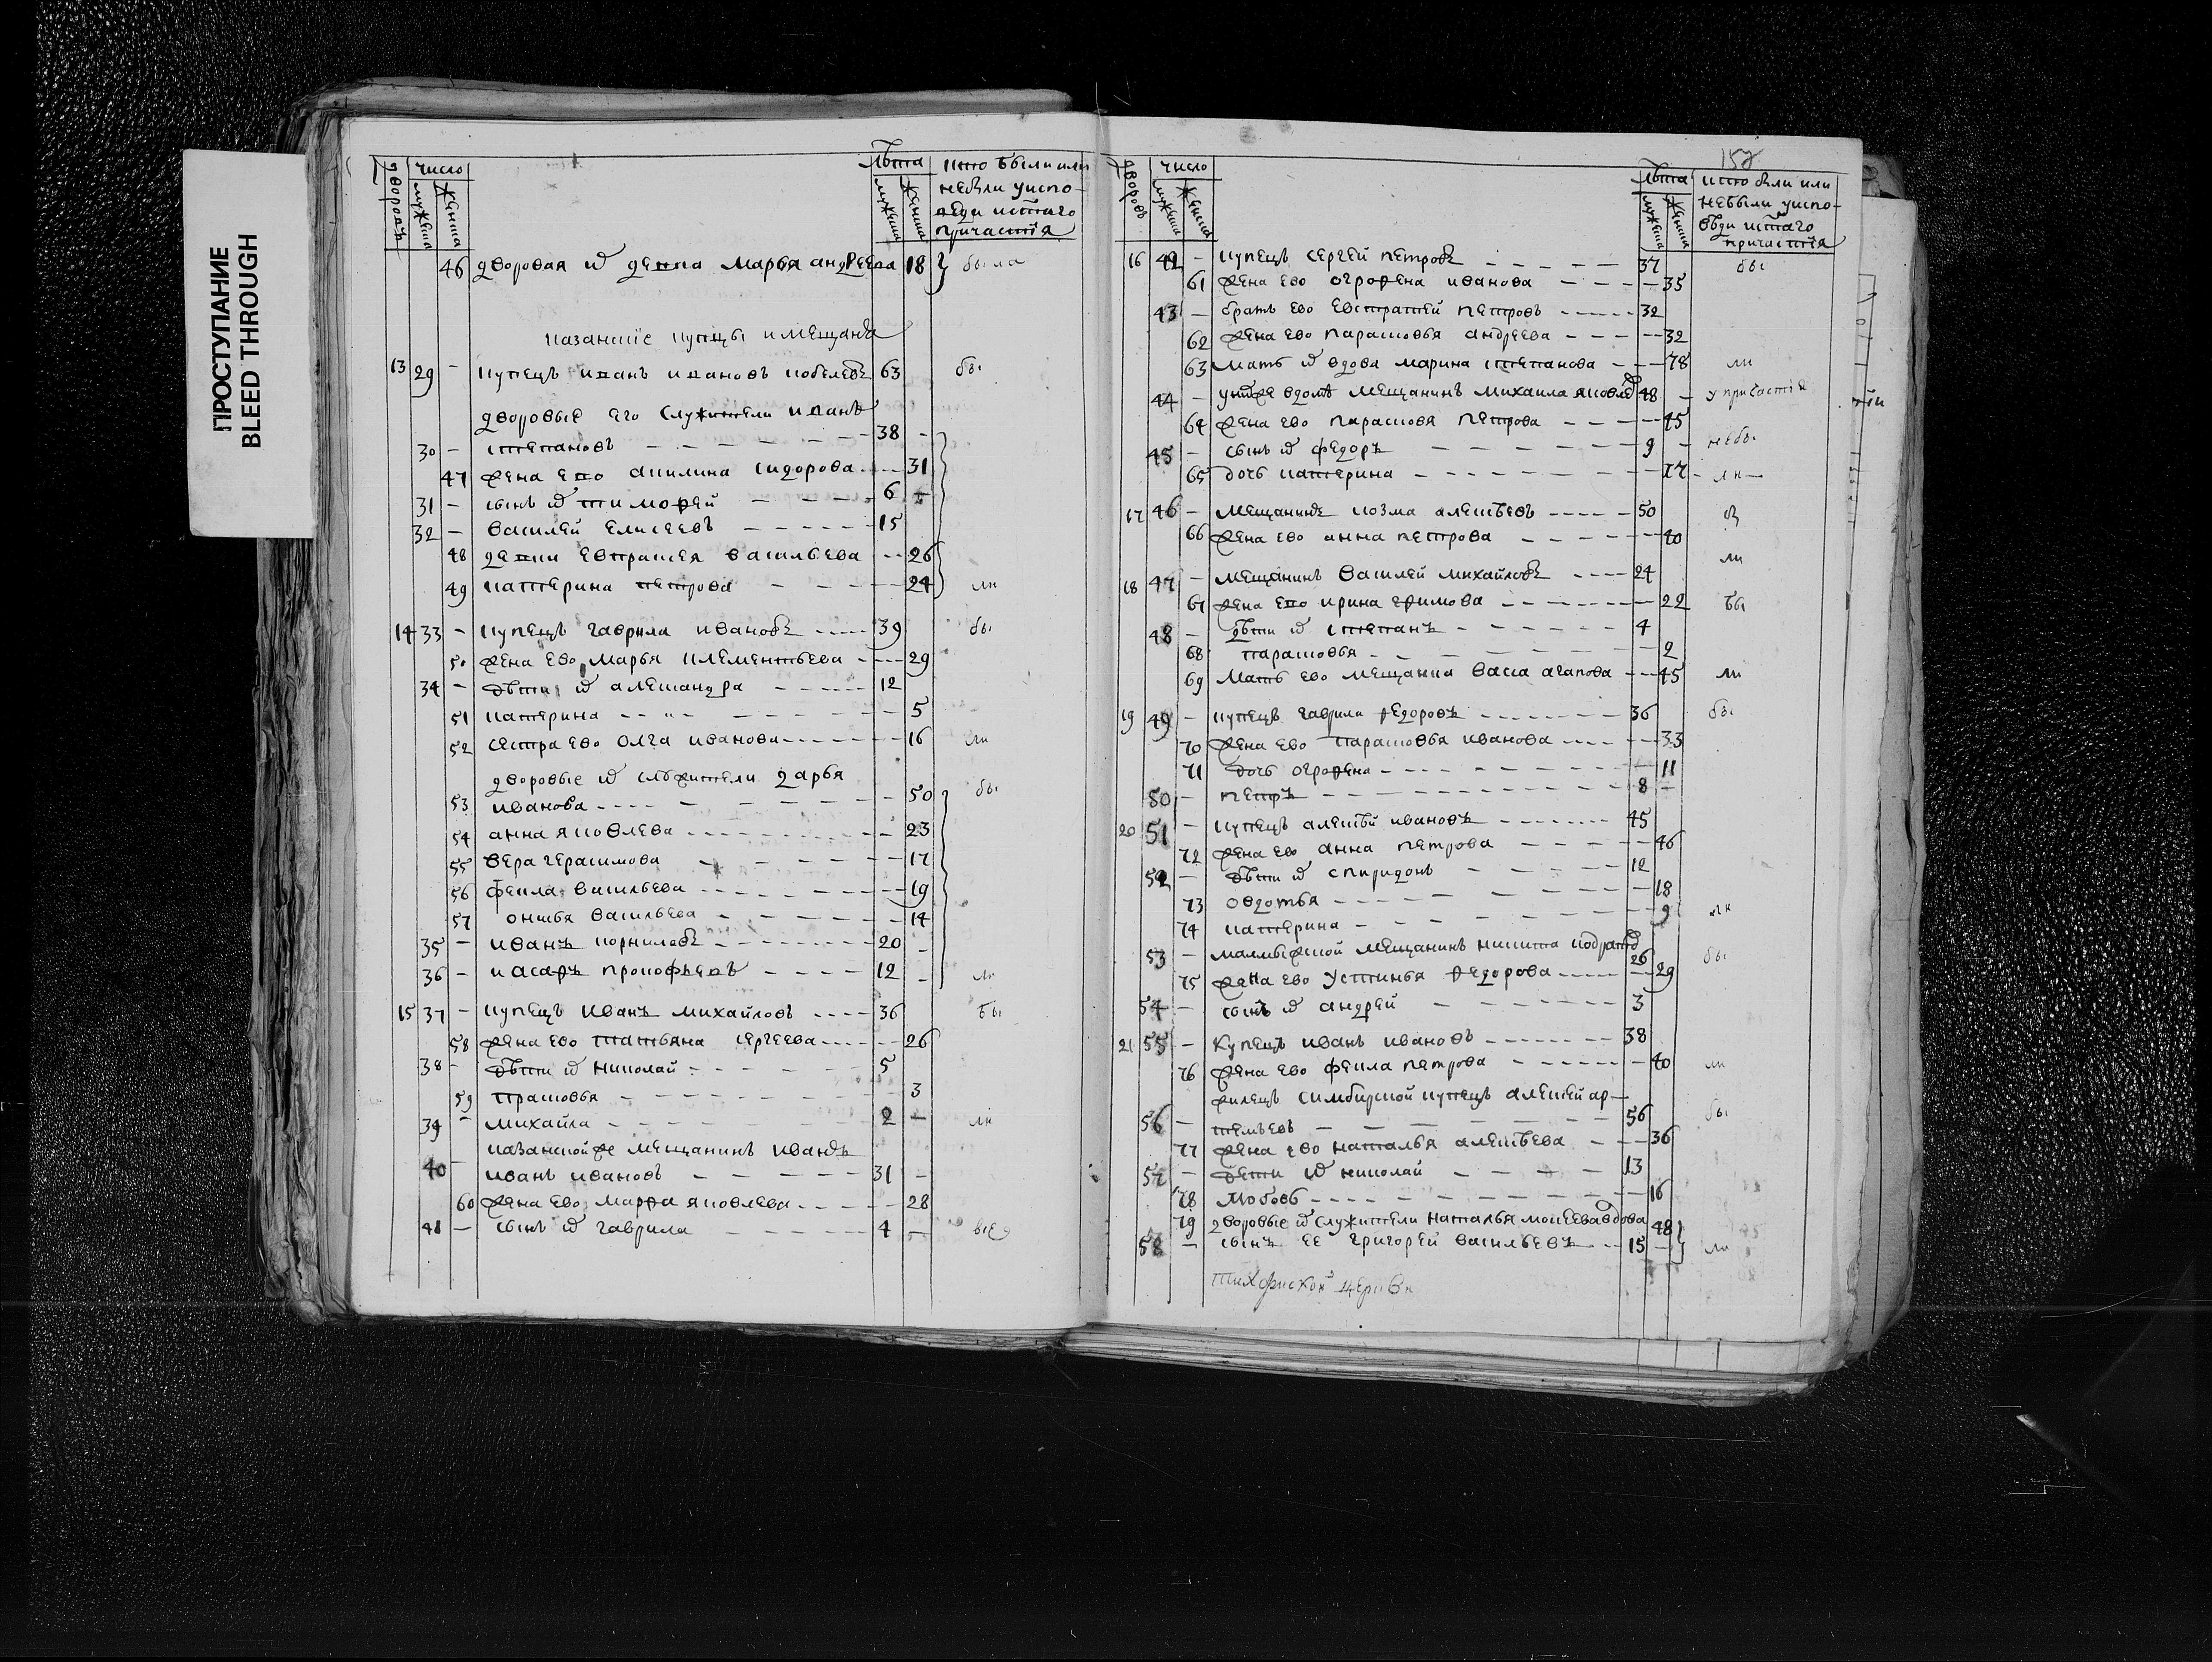 ПРОСТУПАНИЕ
BLEED THROUGH
число
лѣта
кто были или
дворовъ
мужеска
женска
мужеска
женска
небыли уиспо-
веди исто
причастїя
46 дворовая девка Марья андреева 18 была
казанскїе купцы имещаня
13 29 - купецъ иванъ ивановъ кобелевъ 63 бы
дворовые его служители иванъ
30 - степановъ 38 -
47 жена ево акилина сидорова 31
31 - сынъ тимофей 6
32 - василей елисеевъ 15
48 девки евпраксея васильева 26
49 катерина петрова 24 ли
14 33 - купецъ гаврила ивановъ 39 бы
50 жена ево марья клементьева 29
34 - дѣти александра 12
51 катерина 5
52 сестра ево олга иванова 16 ли
дворовые служители дарья
53 иванова 50 бы
54 анна яковлева 23
55 вера герасимова 17
56 фекла васильева 19
57 васильева 14
35 - иванъ корниловъ 20 -
36 - прокофьевъ 12 - ли
15 37 - купецъ иванъ михайловъ 36 бы
58 жена ево татьяна сергеева 26
38 - дѣти николай 5
59 прасковья 3
39 - михайла 2 - ли
казанской же мещанинъ
40 - иванъ ивановъ 31 -
60 жена ево марфа яковлева 28
41 - сынъ гаврила 4 -
152
число
лѣта
кто были или
дворовъ
мужеска
женска
мужеска
женска
небыли уиспо-
вѣди истаго
причастїя
16 42 - купецъ сергей петровъ 37 бы
61 жена ево огрофена иванова 35
43 - братъ ево евстратей петровъ 32
62 жена ево парасковья андреева 32
63 мать вдова марина степанова 78 ли
44 - вдомѣ мещанинъ михаила яковлев 48 - у причастїя
64 жена ево параскова петрова 45
45 - сынъ федоръ 9 - небы
65 дочь катерина 17 - ли
17 46 - мещанинъ козма алексѣевъ 50
66 жена ево анна петрова 40 ли
18 47 - мещанинъ василей михайловъ 24
67 жена ево ирина ефимова 22 бы
48 - дѣти степанъ 4
68 парасковья 2
69 мать ево мещанка васса агапова 45 ли
19 49 - купецъ гаврила федоровъ 36 бы
70 жена ево парасковья иванова 33
71 дочь огрофена 11
50 - петръ 8 -
20 51 - купецъ алексѣй ивановъ 45
72 жена ево анна петрова 46
52 - дѣти спиридонъ 12
73 овдотья 18
74 катерина 9 ли
53 - малмыжской мещанинъ никита 26 бы
75 жена ево устинья федорова 29
54 - сынъ андрей 3
21 55 - купецъ иванъ ивановъ 38
76 жена ево фекла петрова 40 ли
жилецъ симбирской купецъ алексей ар-
56 - темьевъ 56 бы
77 жена ево наталья алексѣева 36
57 - дети николай 13
78 любовь 16
79 дворовые служители наталья моисеева вдова 48
58 - сынъ ее григорей васильевъ 15 - ли